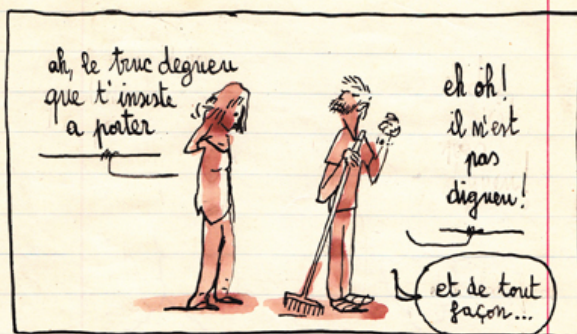 ah, le truc degueu
que t'insiste
a porter
eh oh!
il n'est
pas
digueu!
et de tout
façon...